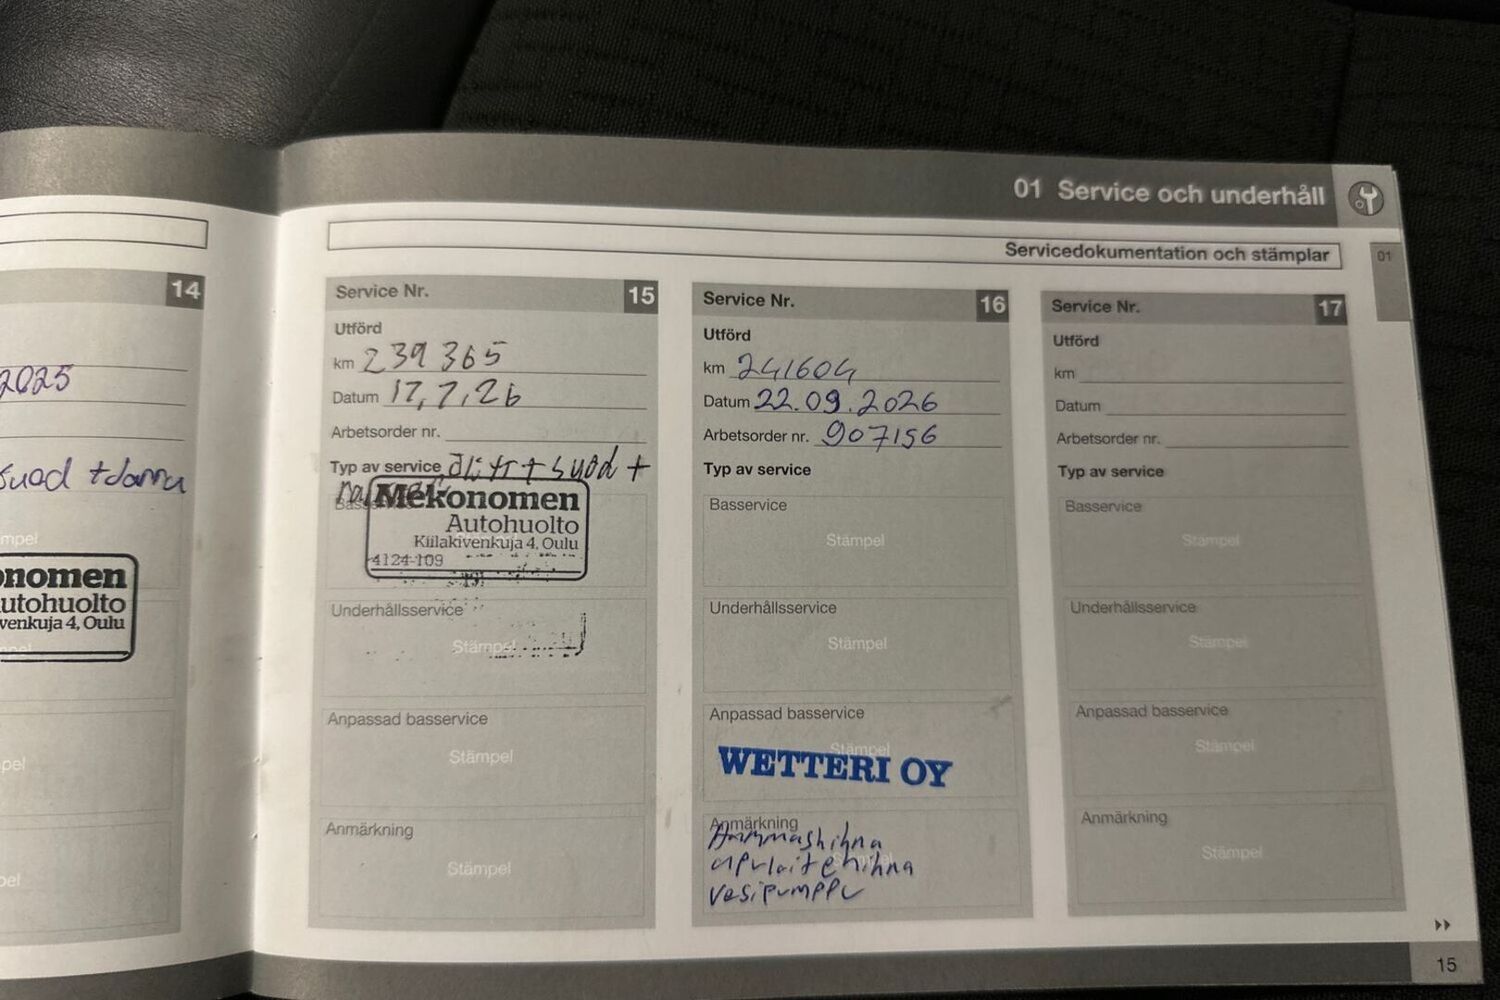 01 Service och underhåll
Servicedokumentation och stämplar
01
14
2025
suod +
mpel
onomen
utohuolto
venkuja 4, Oulu
pel
pel
Service Nr. 15
Utförd
km 239 365
Datum 17,7,26
Arbetsorder nr.
Typ av service öljy + suod +
Mekonomen
Autohuolto
Kiilakivenkuja 4, Oulu
4124-109
Underhållsservice
Stämpel
Anpassad basservice
Stämpel
Anmärkning
Stämpel
Service Nr. 16
Utförd
km 241604
Datum 22.09.2026
Arbetsorder nr. 907156
Typ av service
Basservice
Stämpel
Underhållsservice
Stämpel
Anpassad basservice
Stämpel
WETTERI OY
Anmärkning
Hammashihna
apulaitehihna
vesipumppu
Service Nr. 17
Utförd
km
Datum
Arbetsorder nr.
Typ av service
Basservice
Stämpel
Underhållsservice
Stämpel
Anpassad basservice
Stämpel
Anmärkning
Stämpel
15